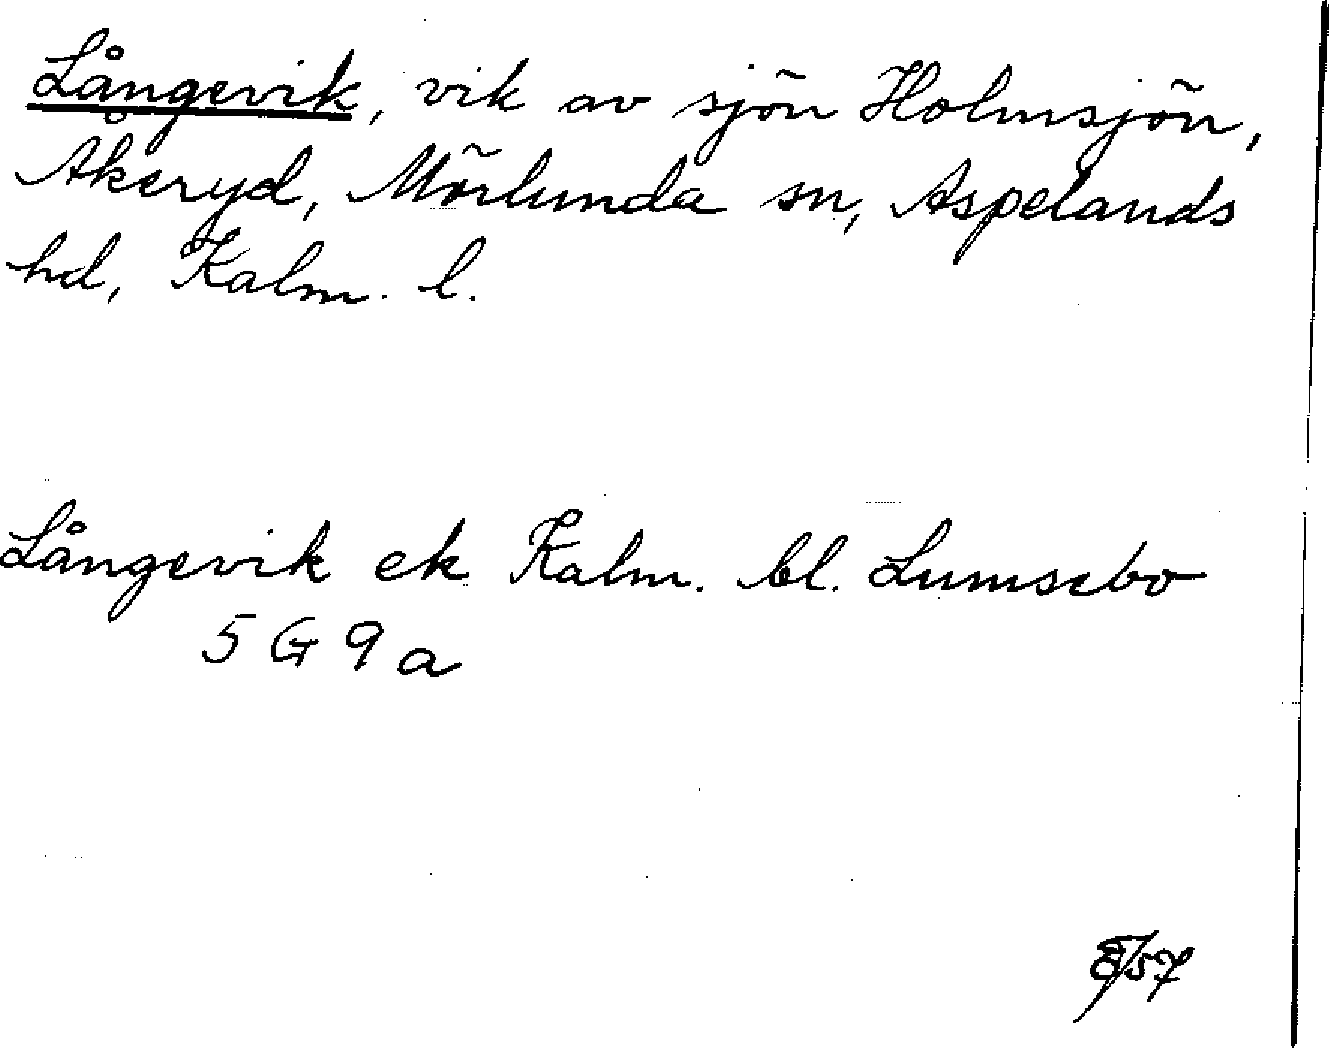 Långevik, vik av sjön Holmsjön,
Åkeryd, Mörlunda sn, Aspelands
hd, Kalm. l.
Långevik ek Kalm. bl. Lumsebo
5 G 9 a
8/57